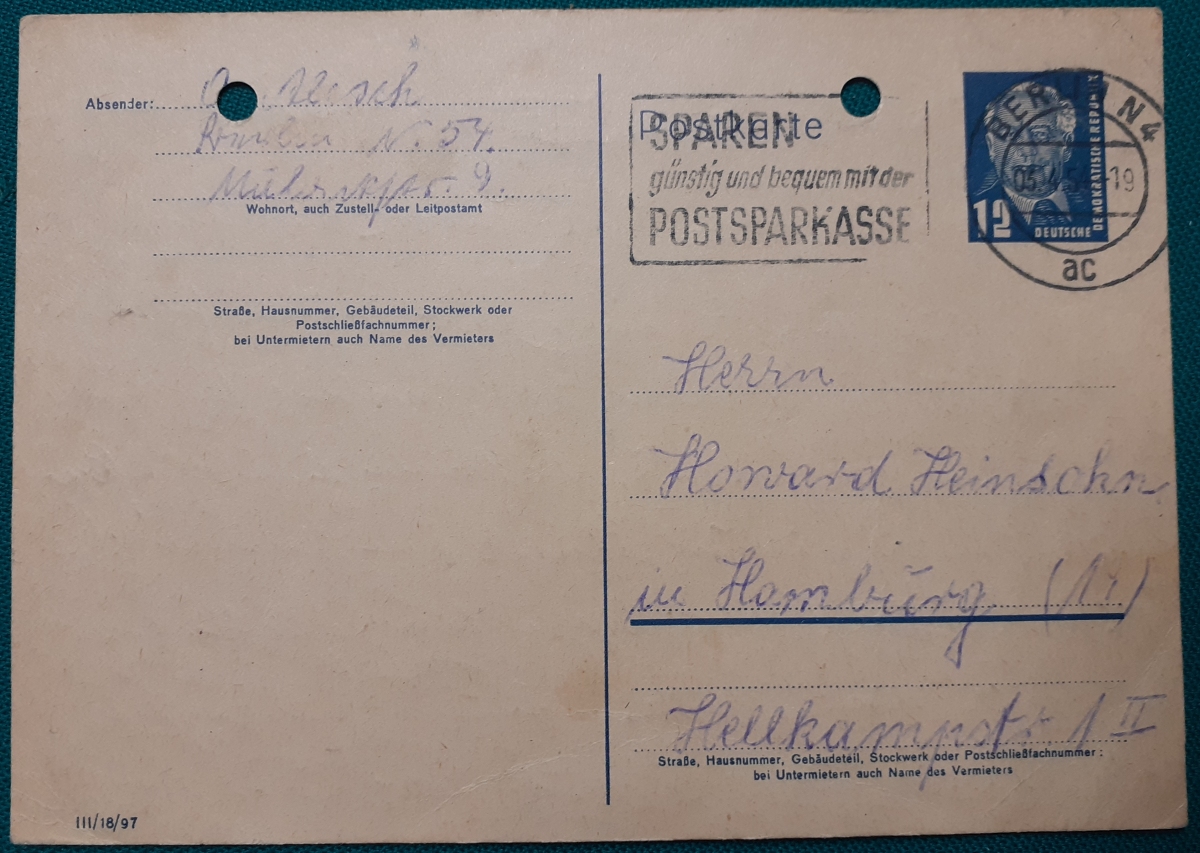 Absender:
N. 54.
9.
Wohnort, auch Zustell- oder Leitpostamt
Straße, Hausnummer, Gebäudeteil, Stockwerk oder
Postschließfachnummer;
bei Untermietern auch Name des Vermieters
III/18/97
Postkarte
SPAREN
günstig und bequem mit der
POSTSPARKASSE
BERLIN N4
-19
ac
12
DEUTSCHE
DEMOKRATISCHE REPUBLIK
Herrn
Howard Heinsohn
in Hamburg
Hellkampstr. 1 II
Straße, Hausnummer, Gebäudeteil, Stockwerk oder Postschließfachnummer:
bei Untermietern auch Name des Vermieters